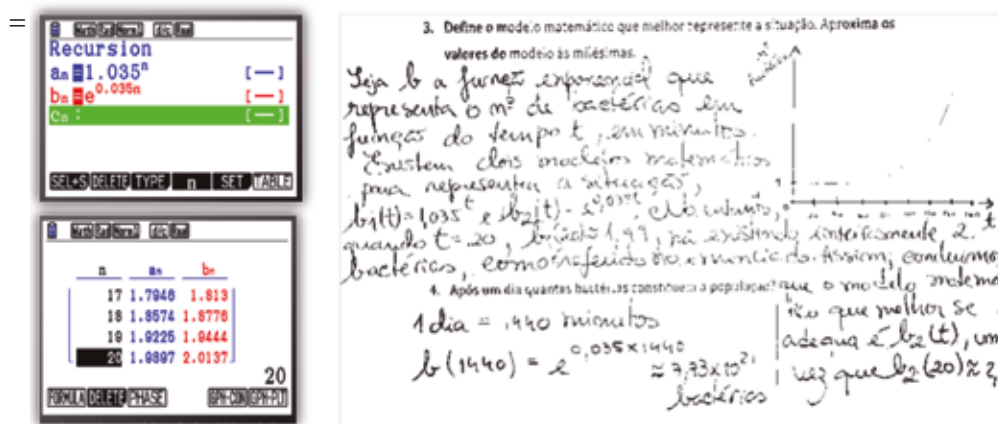 =
Math Rad Norm1 d/c Real
Recursion
aₙ=1.035ⁿ [—]
bₙ=e^0.035n [—]
cₙ: [—]
SEL+S DELETE TYPE n SET TABLE
Math Rad Norm1 d/c Real
n aₙ bₙ
17 1.7946 1.813
18 1.8574 1.8776
19 1.9225 1.9444
20 1.9897 2.0137
20
FORMULA DELETE PHASE GPH-CON GPH-PLT
3. Define o modelo matemático que melhor represente a situação. Aproxima os
valores do modelo às milésimas.
Seja b a função exponencial que
representa o nº de bactérias em
função do tempo t, em minutos.
Existem dois modelos matemáticos
para representar a situação,
b₁(t)=1,035^t e b₂(t)=e^0,035t. No entanto,
quando t=20, b₁(20)≈1,99,
bactérias, como referido no enunciado. Assim, concluímos
4. Após um dia quantas bactérias constituem a população?
que o modelo matemá
tico que melhor se
adequa é b₂(t), um
vez que b₂(20)≈2,
1 dia = 1440 minutos
b(1440) = e^0,035×1440 ≈ 7,73×10^21
bactérias
1
0
t